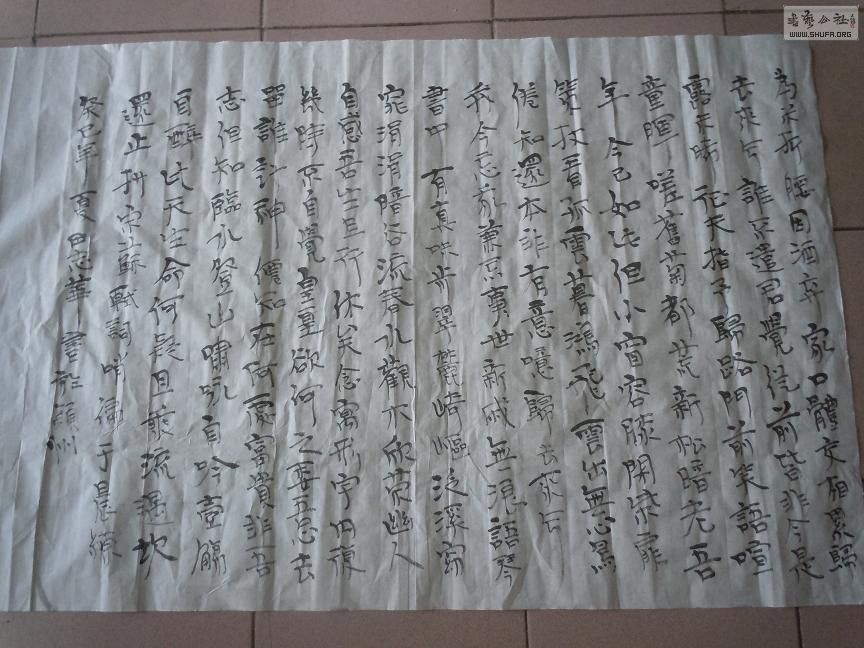 為米折腰因酒弃家口體交相累歸
去來兮誰不遣君歸覺從前皆非今是
露未晞征夫指予歸路門前笑語喧
童稚嗟舊菊都荒新松暗老吾
年今已如此但小窗容膝閉柴扉
策杖看孤雲暮鴻飛雲出無心鳥
倦知還本非有意噫歸去來兮
我今忘我兼忘事世新戚無浪語琴
書中有真味步翠麓崎嶇泛溪窈
窕涓涓暗谷流春水觀木欣榮幽人
自感吾生且行休矣念寓形宇内復
幾時不自覺皇皇欲何之委吾心去
留誰計神僊知在何處富貴非吾
志但知臨水登山嘯詠自吟壺觴
自醉此天生命何疑且乘流遇坎
還止抄宋蘇軾詞哨徧于晨練
癸巳年夏田忠華書於穎州
書藝公社
WWW.SHUFA.ORG